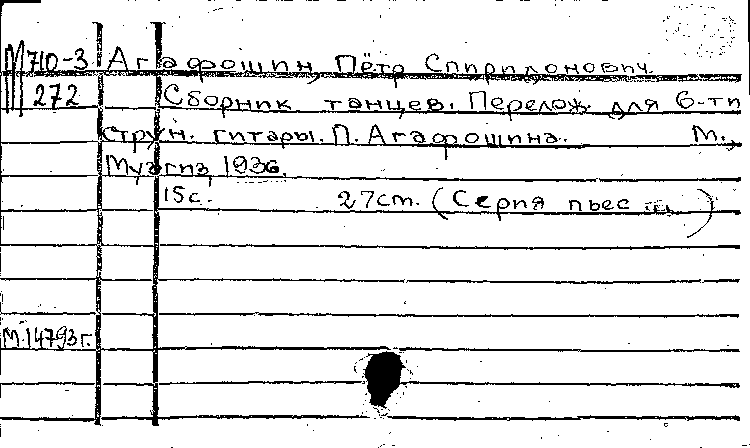 М 710-3 Агафошин, Пётр Спиридонович.
272 Сборник танцев. Перелож. для 6-ти
струн. гитары. П. Агафошина. М.,
Музгиз, 1936.
15с. 27cm. (Серия пьес )
М.14793г.